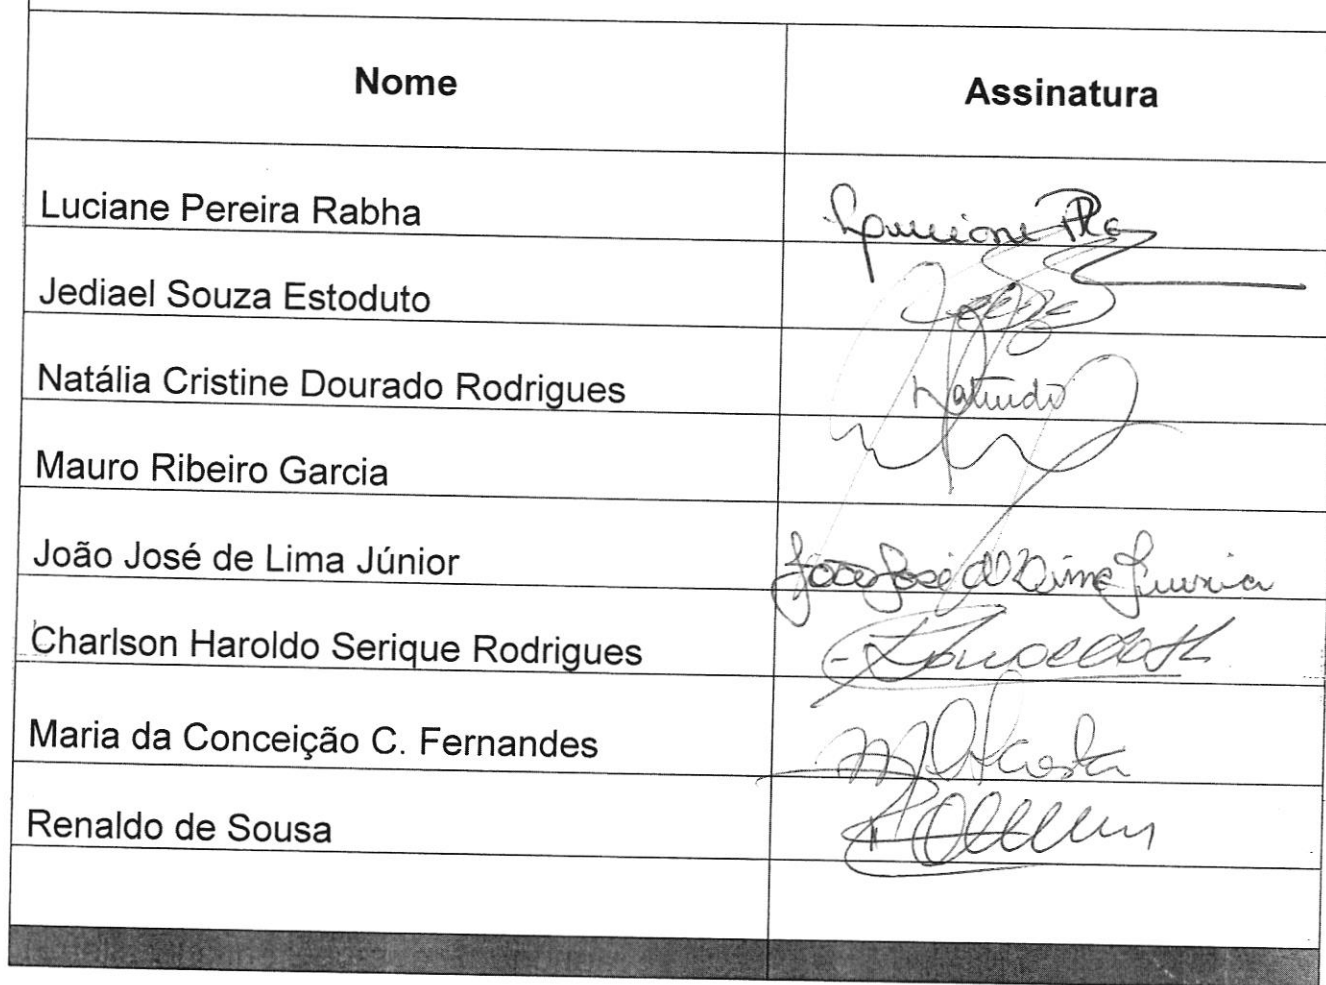 Nome Assinatura
Luciane Pereira Rabha
Jediael Souza Estoduto
Natália Cristine Dourado Rodrigues
Mauro Ribeiro Garcia
João José de Lima Júnior João José de Lima Junior
Charlson Haroldo Serique Rodrigues
Maria da Conceição C. Fernandes
Renaldo de Sousa